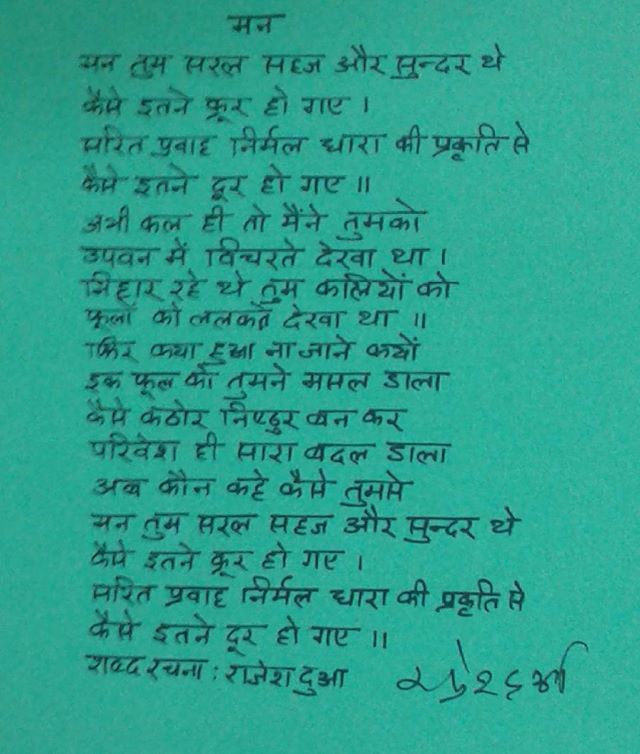 मन
मन तुम सरल सहज और सुन्दर थे
कैसे इतने क्रूर हो गए ।
सरित प्रवाह निर्मल धारा की प्रकृति से
कैसे इतने दूर हो गए ॥
अभी कल ही तो मैंने तुमको
उपवन में विचरते देखा था ।
निहार रहे थे तुम कलियों को
फूलों को ललकते देखा था ॥
फिर क्या हुआ ना जाने क्यों
इक फूल को तुमने मसल डाला
कैसे कठोर निष्ठुर बन कर
परिवेश ही सारा बदल डाला
अब कौन कहे कैसे तुमसे
मन तुम सरल सहज और सुन्दर थे
कैसे इतने क्रूर हो गए ।
सरित प्रवाह निर्मल धारा की प्रकृति से
कैसे इतने दूर हो गए ॥
शब्द रचना : राजेश दुआ